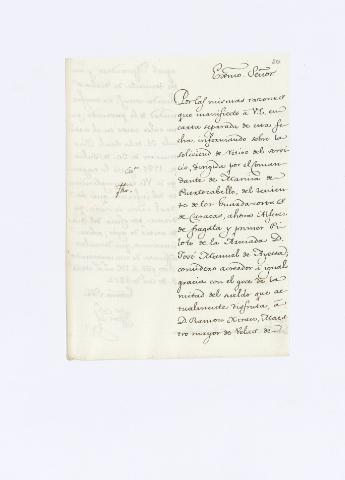 20
Exmo. Señor
Por las mismas razones
que manifiesto à V.E. en
carta separada de esta fe-
cha, informando sobre la
solicitud de retiro del servi-
cio, dirigida por el Coman-
dante de Marina de
Puertocabello, del teniente
de los Guardacostas
de Caracas, ahora Alferez
de fragata y primer Pi-
loto de la Armada D.
José Manuel de
considero acreedor à igual
gracia con el goce de la
mitad del sueldo que ac-
tualmente disfruta, à
D. Ramon Maes-
tro mayor de Velas de